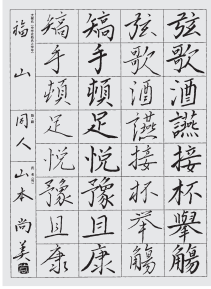 弦歌酒讌接杯舉觴
弦歌酒讌接杯举觴
矯手頓足悦豫且康
矯手頓足悦豫且康
福山 同人 山本尚美